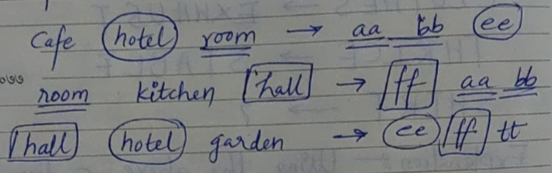 Cafe hotel room → aa bb ee
room kitchen hall → ff aa bb
hall hotel garden → ee ff tt